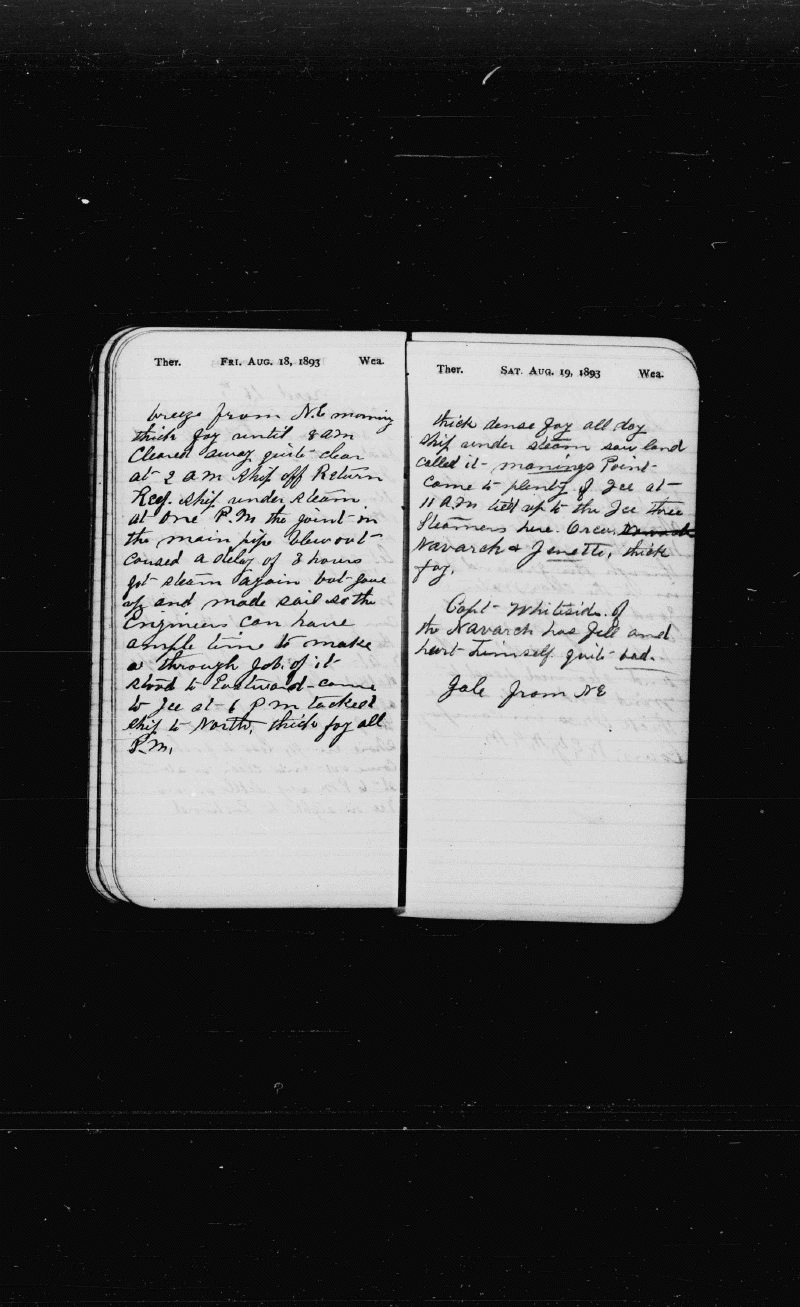 Ther. FRI. AUG. 18, 1893 Wea.
breeze from N.E morning
thick fog until 8 am
Cleared away quite clear
at 2 am Ship off Return
Reef. Ship under steam
at One P.M the joint in
the main pipe blew out
caused a delay of 3 hours
got steam again but gave
up and made sail so the
Engineers can have
ample time to make
a through Job of it
stood to Eastward came
to Ice at 6 P m tacked
ship to North, thick fog all
P.M.
Ther. SAT. AUG. 19, 1893 Wea.
thick dense fog all day
Ship under steam saw land
called it manings Point
Come to plenty of Ice at
11 A.M tied up to the Ice three
Steamers here. Orca
Navarch & Jenette, thick
fog.
Capt Whiteside of
the Navarch has fell and
hurt himself quite bad.
Gale from NE